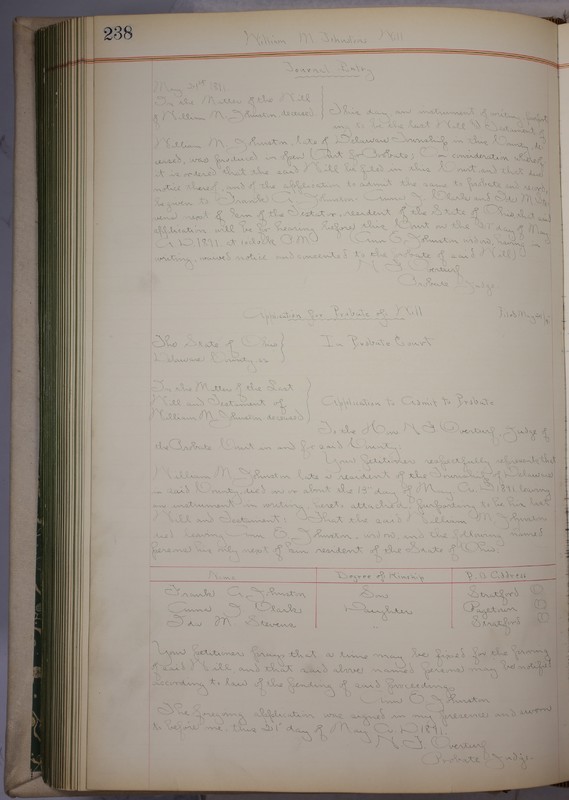 238
William M. Johnston Will
Journal Entry
May 21st 1891.
In the Matter of the Will
of William M. Johnston deceased
This day an instrument of writing purport
ing to be the last Will & Testament of
William M. Johnston, late of Delaware Township in this County de
ceased, was produced in open Court for Probate; In consideration whereof
it is ordered that the said Will be filed in this Court and that due
notice thereof, and of the application to admit the same to probate and record,
be given to Frank G. Johnston Anna J. Clark and Ida M. Ste
next of kin of the Testator, resident of the State of Ohio that said
application will be for hearing before this Court on the day of May
A.D. 1891, at o'clock A.M. Ann O. Johnston widow, having in
writing, waived notice and consented to the probate of said Will
N. F. Overturf
Probate Judge
Application for Probate of Will
Filed May
The State of Ohio
Delaware County, ss
In Probate Court
In the Matter of the Last
Will and Testament of
William M. Johnston deceased
Application to Admit to Probate
To the Hon. N. F. Overturf, Judge of
the Probate Court in and for said County.
Your petitioner respectfully represents that
William M. Johnston late a resident of the Township of Delaware
in said County, died on or about the 15th day of May A.D. 1891 leaving
an instrument in writing, hereto attached, purporting to be his last
Will and Testament; that the said William M. Johnston
died leaving Ann O. Johnston, widow, and the following named
persons his only next of kin resident of the State of Ohio:
Name Degree of Kinship P.O. Address
Frank G. Johnston Son Stratford O
Anna J. Clark Daughter O
Ida M. Stevens " Stratford O
Your petitioner prays that a time may be fixed for the proving
of said Will and that said above named persons may be notified
according to law of the pending of said proceedings
Ann O. Johnston
The foregoing application was signed in my presence and sworn
to before me, this 21st day of May A.D. 1891.
N. F. Overturf
Probate Judge.